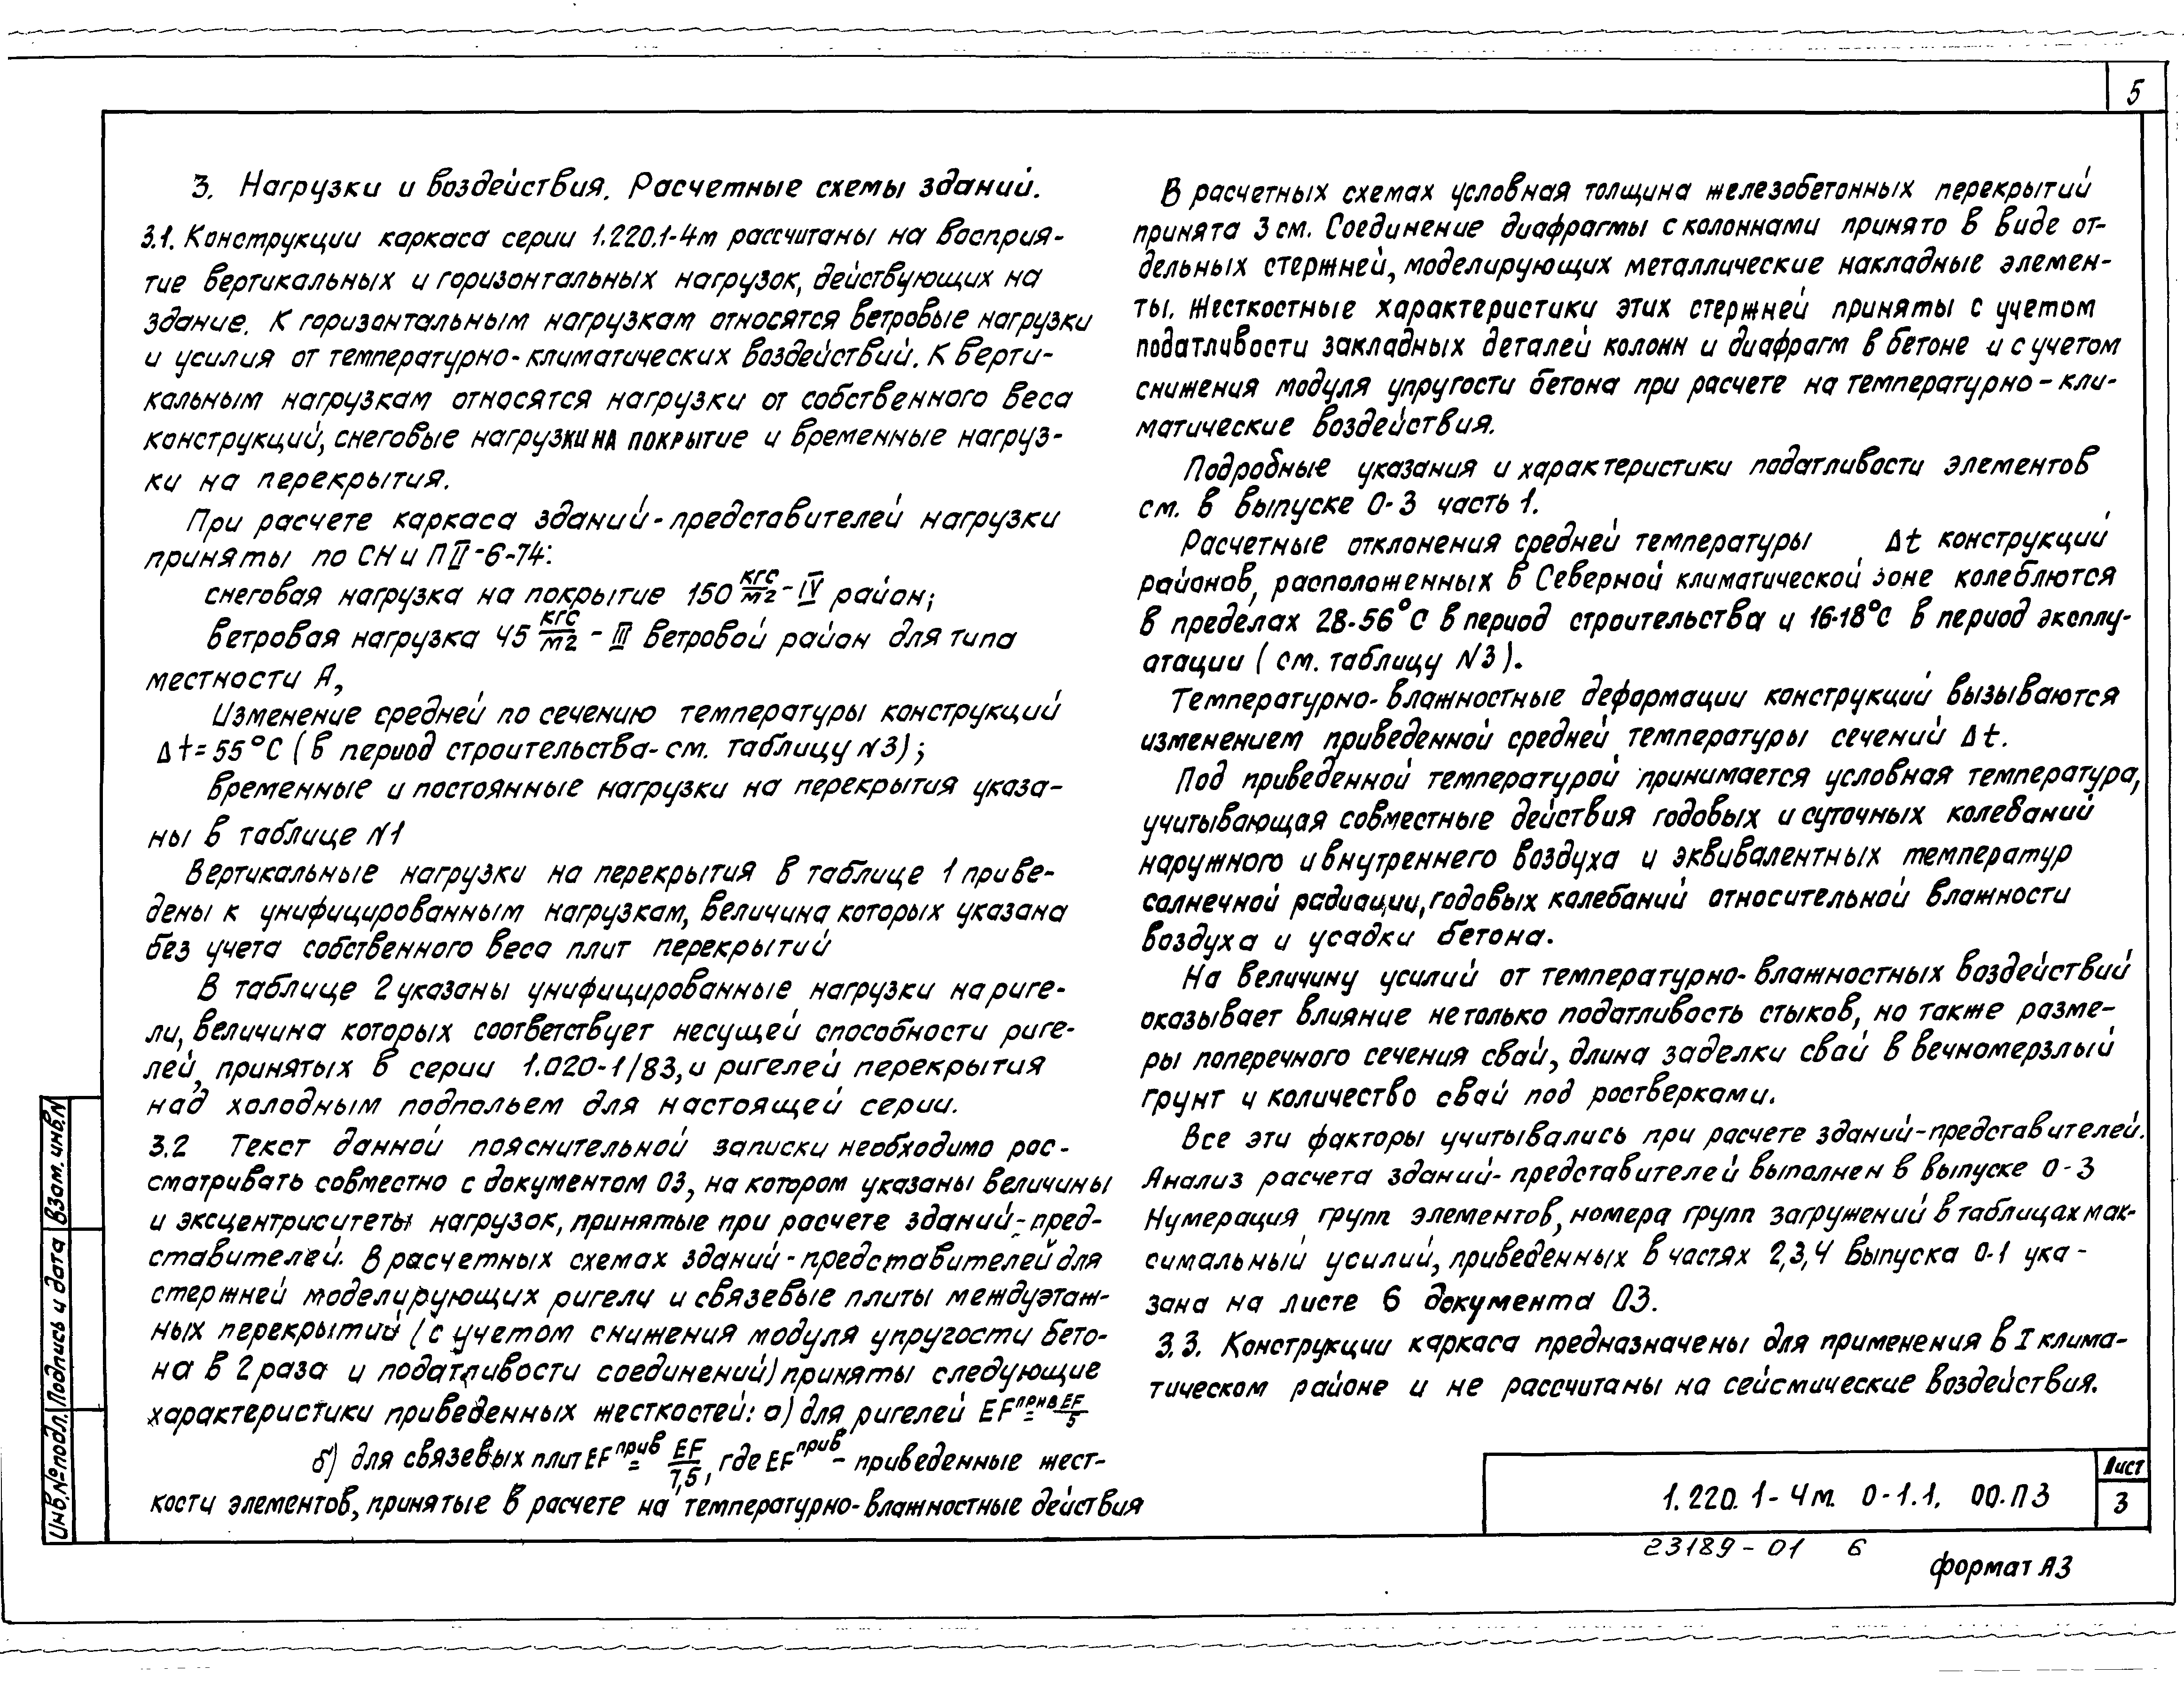 5
3. Нагрузки и воздействия. Расчетные схемы зданий.
3.1. Конструкции каркаса серии 1.220.1-4м рассчитаны на восприя-
тие вертикальных и горизонтальных нагрузок, действующих на
здание. К горизонтальным нагрузкам относятся ветровые нагрузки
и усилия от температурно-климатических воздействий. К верти-
кальным нагрузкам относятся нагрузки от собственного веса
конструкций, снеговые нагрузки на покрытие и временные нагруз-
ки на перекрытия.
При расчете каркаса зданий-представителей нагрузки
приняты по СНиП II-6-74:
снеговая нагрузка на покрытие 150 кгс/м2 - IV район;
ветровая нагрузка 45 кгс/м2 - III ветровой район для типа
местности А,
Изменение средней по сечению температуры конструкций
Δt=55°С (в период строительства-см. таблицу N3);
временные и постоянные нагрузки на перекрытия указа-
ны в таблице N1
Вертикальные нагрузки на перекрытия в таблице 1 приве-
дены к унифицированным нагрузкам, величина которых указана
без учета собственного веса плит перекрытий
В таблице 2 указаны унифицированные нагрузки на риге-
ли, величина которых соответствует несущей способности риге-
лей, принятых в серии 1.020-1/83, и ригелей перекрытия
над холодным подпольем для настоящей серии.
3.2 Текст данной пояснительной записки необходимо рас-
сматривать совместно с документом 03, на котором указаны величины
и эксцентриситеты нагрузок, принятые при расчете зданий-пред-
ставителей. В расчетных схемах зданий-представителей для
стержней моделирующих ригели и связевые плиты междуэтаж-
ных перекрытий (с учетом снижения модуля упругости бето-
на в 2 раза и податливости соединений) приняты следующие
характеристики приведенных жесткостей: а) для ригелей EF прив = EF/5
б) для связевых плит EF прив = EF/7,5, где EF прив - приведенные жест-
кости элементов, принятые в расчете на температурно-влажностные действия
В расчетных схемах условная толщина железобетонных перекрытий
принята 3 см. Соединение диафрагмы с колоннами принято в виде от-
дельных стержней, моделирующих металлические накладные элемен-
ты. Жесткостные характеристики этих стержней приняты с учетом
податливости закладных деталей колонн и диафрагм в бетоне и с учетом
снижения модуля упругости бетона при расчете на температурно-кли-
матические воздействия.
Подробные указания и характеристики податливости элементов
см. в выпуске 0-3 часть 1.
Расчетные отклонения средней температуры Δt конструкций
районов, расположенных в Северной климатической зоне колеблются
в пределах 28-56°С в период строительства и 16-18°С в период эксплу-
атации (см. таблицу N3).
Температурно-влажностные деформации конструкций вызываются
изменением приведенной средней температуры сечений Δt.
Под приведенной температурой принимается условная температура,
учитывающая совместные действия годовых и суточных колебаний
наружного и внутреннего воздуха и эквивалентных температур
солнечной радиации, годовых колебаний относительной влажности
воздуха и усадки бетона.
На величину усилий от температурно-влажностных воздействий
оказывает влияние не только податливость стыков, но также разме-
ры поперечного сечения свай, длина заделки свай в вечномерзлый
грунт и количество свай под ростверками.
Все эти факторы учитывались при расчете зданий-представителей.
Анализ расчета зданий-представителей выполнен в выпуске 0-3
Нумерация групп элементов, номера групп загружений в таблицах мак-
симальный усилий, приведенных в частях 2,3,4 выпуска 0-1 ука-
зана на листе 6 документа 03.
3.3. Конструкции каркаса предназначены для применения в I клима-
тическом районе и не рассчитаны на сейсмические воздействия.
Инв.№подл. Подпись и дата Взам.инв.N
1.220.1-4м. 0-1.1. 00.ПЗ
Лист
3
23189-01 6
формат А3